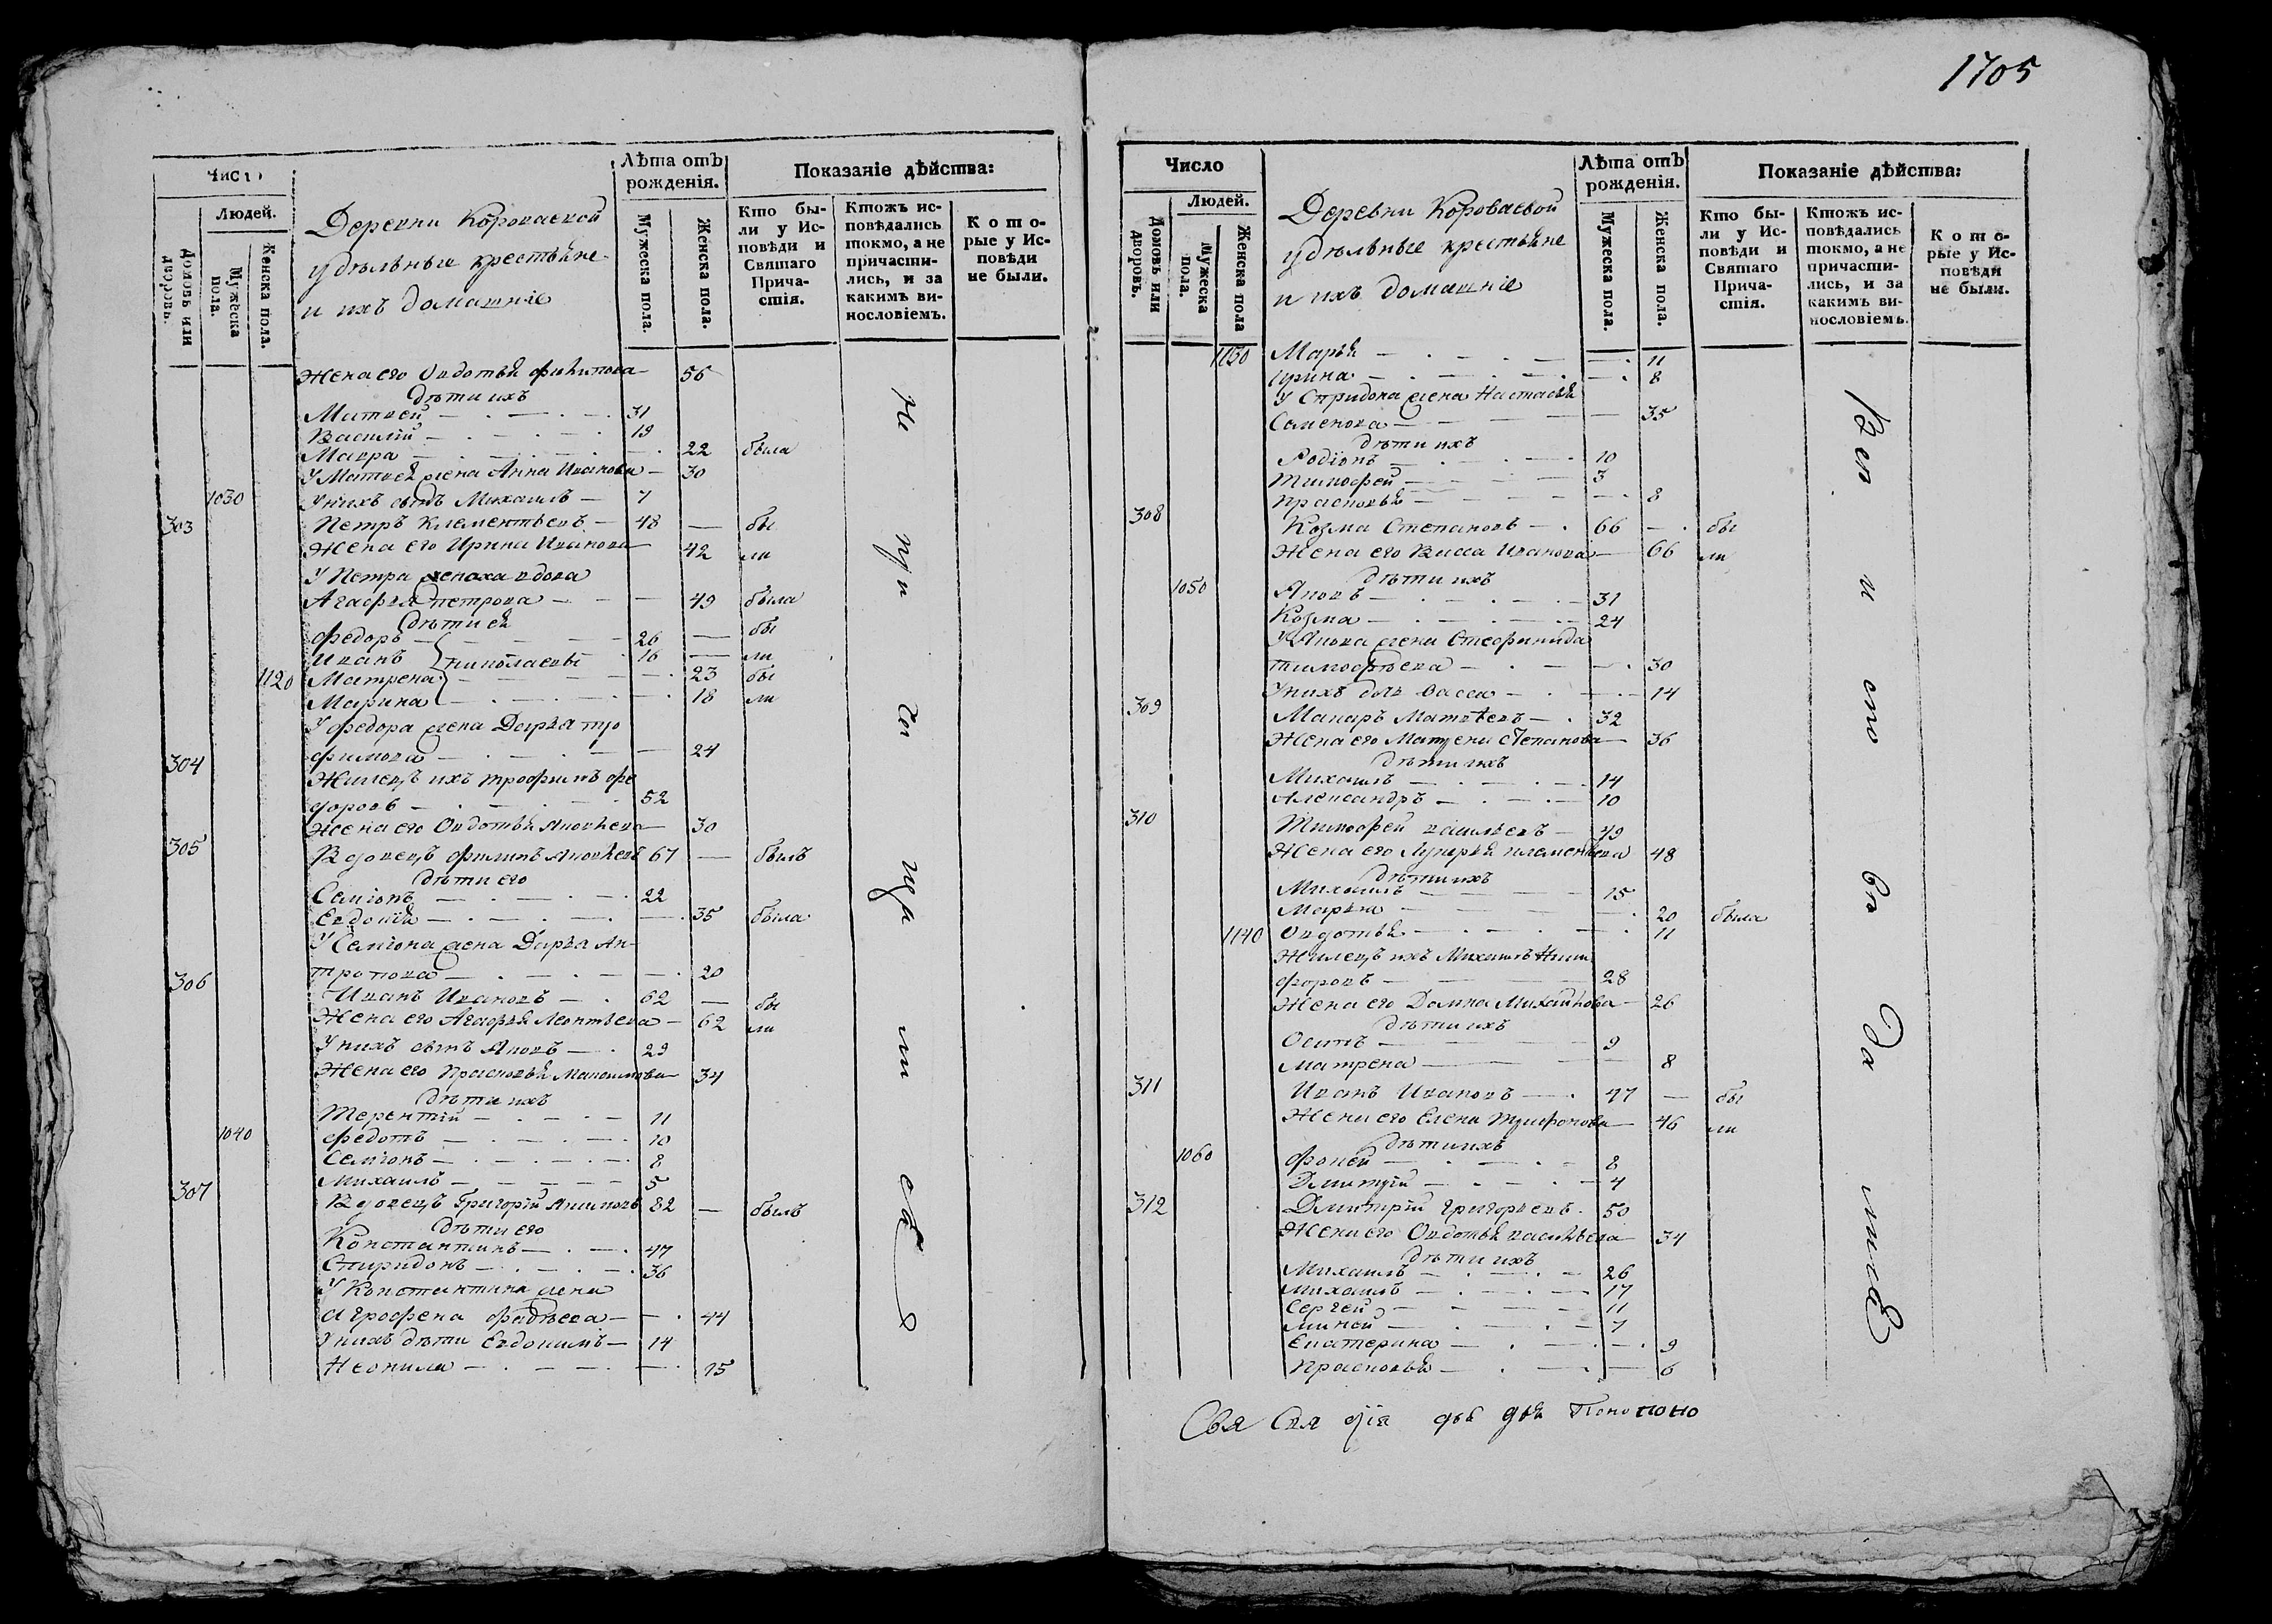 1705
Число
Людей.
Домовъ или дворовъ.
Мужеска пола.
Женска пола.
Деревни Короваевой
удѣльные крестьяне
и ихъ домашніе
Лѣта отъ рожденія.
Мужеска пола.
Женска пола.
Показаніе дѣйства:
Кто бы-
ли у Ис-
повѣди и
Святаго
Прича-
стія.
Ктожъ ис-
повѣдались
токмо, а не
причасти-
лись, и за
какимъ ви-
нословіемъ.
Кото-
рые у Ис-
повѣди
не были.
Жена его Овдотья Филипова — 56
дѣти ихъ
Матвей — 31
Василій — 19
Мавра — 22 была
У Матвея жена Анна Иванова — 30
1030 У нихъ сынъ Михаилъ — 7
303 Петръ Клементьевъ — 48 — бы
Жена его Ирина Иванова 42 ли
У Петра вдова
Агафья Петрова — 49 была
дѣти ея
Федоръ — 26 — бы
Иванъ Николаевы 16 — ли
1120 Матрена — 23 бы
Марина — 18 ли
У Федора жена Дарья Тро
фимова — 24
304 Жилецъ ихъ Трофимъ Фе
доровъ — 52
Жена его Овдотья Яковлева — 30
305 Вдовецъ Филипъ Яковлевъ 67 — былъ
дѣти его
Саміонъ — 22
Евдокія — 35 была
У Саміона жена Дарья Ан-
тропова — 20
306 Иванъ Ивановъ — 62 — бы
Жена его Агафья Леонтьева — 62 ли
У нихъ сынъ Яковъ — 29
Жена его Прасковья Максимова — 34
дѣти ихъ
Терентій — 11
1040 Федотъ — 10
Саміонъ — 8
Михаилъ — 5
307 Вдовецъ Григорій 82 — былъ
дѣти его
Константинъ — 47
Спиридонъ — 36
У Константина жена
Агрофена Фадѣева — 44
У нихъ дѣти Евдокимъ — 14
Неонила — 15
Не при ча ща ли ся
Число
Людей.
Домовъ или дворовъ.
Мужеска пола.
Женска пола
Деревни Короваевой
удѣльные крестьяне
и ихъ домашніе
Лѣта отъ рожденія.
Мужеска пола.
Женска пола.
Показаніе дѣйства:
Кто бы-
ли у Ис-
повѣди и
Святаго
Прича-
стія.
Ктожъ ис-
повѣдались
токмо, а не
причасти-
лись, и за
какимъ ви-
нословіемъ.
Кото-
рые у Ис-
повѣди
не были.
1130 Марья — 11
Ирина — 8
У Спридона жена Настасья
Саменова — 35
дѣти ихъ
Родіонъ — 10
Тимофей — 3
Прасковья — 8
308 Козма Степановъ — 66 — бы
Жена его Васса Иванова — 66 ли
дѣти ихъ
1050 Яковъ — 31
Козма — 24
У Якова жена Стефанида
Тимофѣева — 30
У нихъ дочь Васса — 14
309 Макаръ Матвѣевъ — 32
Жена его Матрена Степанова — 36
дѣти ихъ
Михаилъ — 14
Александръ — 10
310 Тимофей Васильевъ — 49
Жена его Лукерья Клементьева 48
дѣти ихъ
Михаилъ — 15
Марья — 20 была
1140 Овдотья — 11
Жилецъ ихъ Михаилъ Ники
форовъ — 28
Жена его Домна Михайлова — 26
дѣти ихъ
Осипъ — 9
Матрена — 8
311 Иванъ Ивановъ — 47 — бы
Жена его Елена Трифонова — 46 ли
дѣти ихъ
1060 Фокей — 8
Дмитрій — 4
312 Дмитрій Григорьевъ 50
Жена его Овдотья Васильева — 34
дѣти ихъ
Михаилъ — 26
Михаилъ — 17
Сергей — 11
Миней — 7
Екатерина — 9
Прасковья — 6